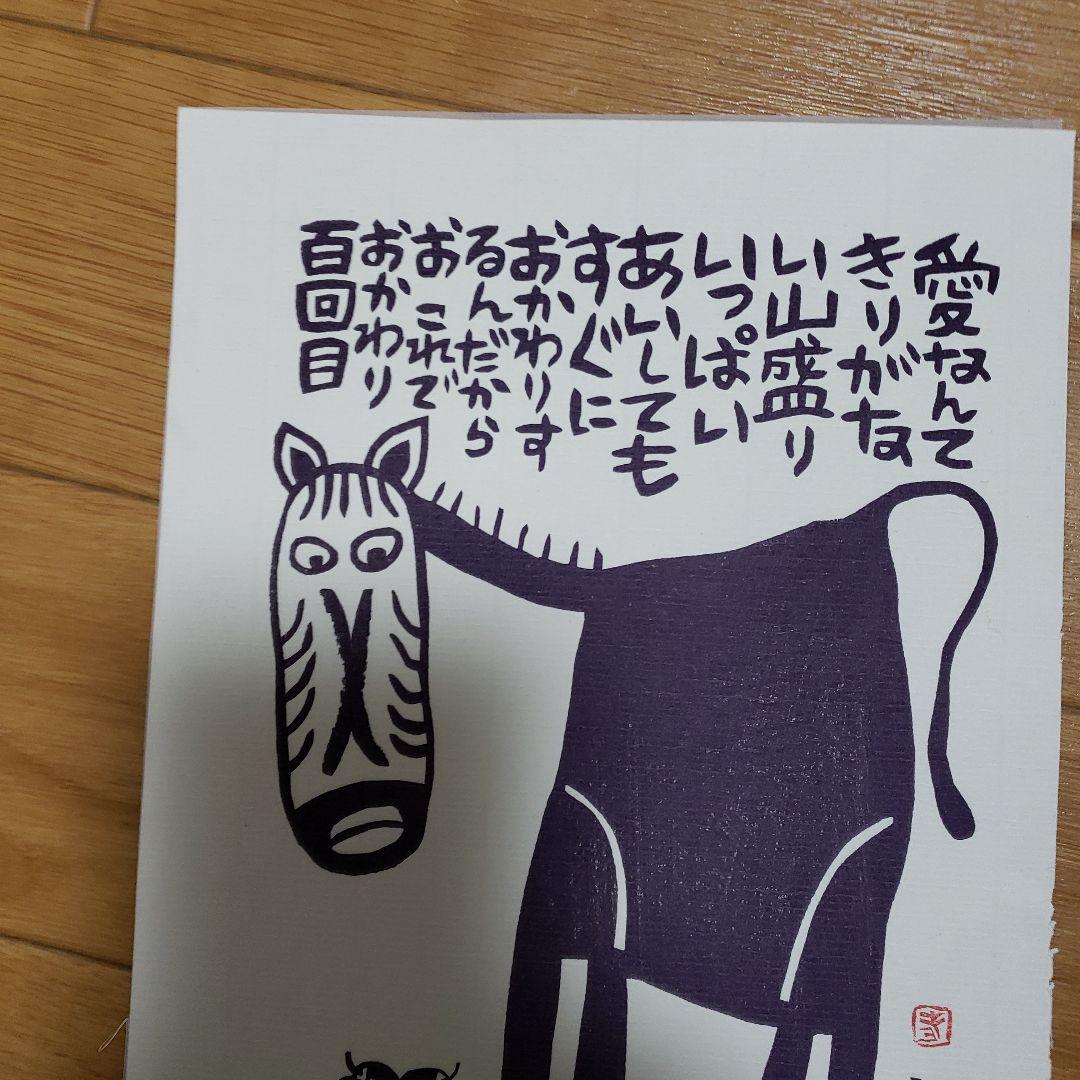 愛なんて
きりがな
い山盛り
いっぱい
あいしても
すぐに
おかわりす
るんだから
お これで
おかわり
百回目